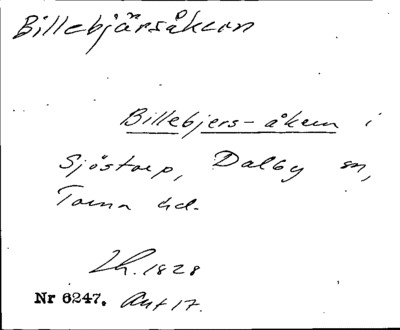 Billebjärsåkern
Billebjers-åkern i
Sjöstorp, Dalby sn,
Torna hd.
Lh. 1828
Nr 6247. Akt 17.